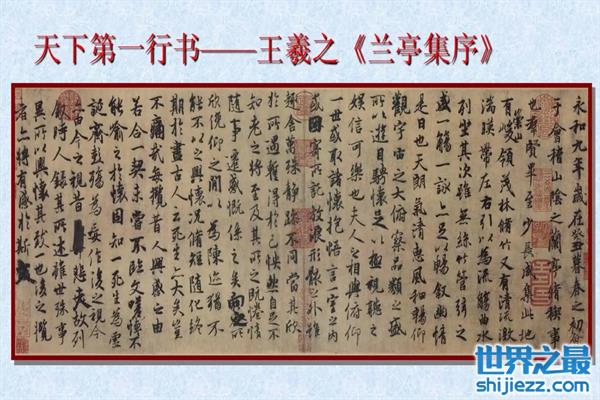 天下第一行书——王羲之《兰亭集序》
永和九年歲在癸丑暮春之初會
于會稽山陰之蘭亭脩稧事
也羣賢畢至少長咸集此地
有崇山峻領茂林脩竹又有清流激
湍暎帶左右引以為流觴曲水
列坐其次雖無絲竹管弦之
盛一觴一詠亦足以暢敘幽情
是日也天朗氣清惠風和暢仰
觀宇宙之大俯察品類之盛
所以遊目騁懷足以極視聽之
娛信可樂也夫人之相與俯仰
一世或取諸懷抱悟言一室之內
或因寄所託放浪形骸之外雖
趣舍萬殊靜躁不同當其欣
於所遇蹔得於己怏然自足不
知老之將至及其所之既惓情
隨事遷感慨係之矣向之所
欣俛仰之閒以為陳迹猶不
能不以之興懷況脩短隨化終
期於盡古人云死生亦大矣豈
不痛哉每攬昔人興感之由
若合一契未嘗不臨文嗟悼不
能喻之於懷固知一死生為虛
誕齊彭殤為妄作後之視今
亦由今之視昔悲夫故列
敘時人錄其所述雖世殊事
異所以興懷其致一也後之攬
者亦將有感於斯文
世界之最
shijiezz.com